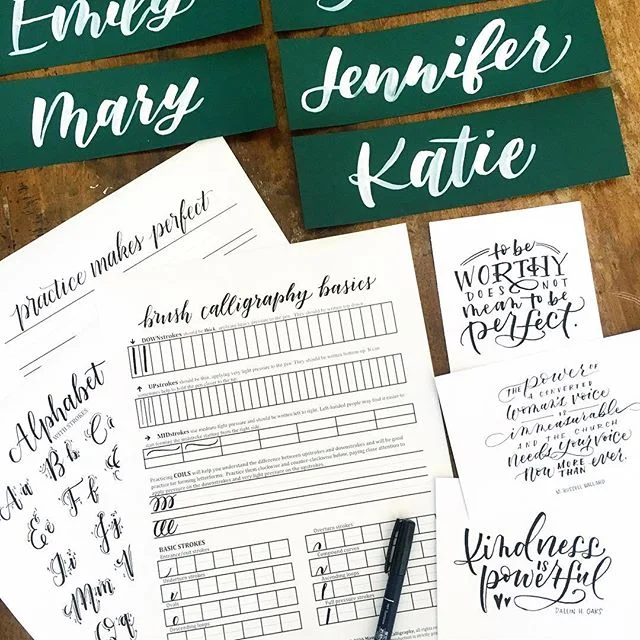 Emily
Mary
Jennifer
Katie
practice makes perfect
Alphabet
WITH STROKES
Aa
Bb
Cc
Ee
Ff
Ii
Jj
Mm
brush calligraphy basics
DOWNstrokes should be thick, applying heavy pressure to the pen. They should be written top down.
UPstrokes should be thin, applying very light pressure to the pen. They should be written bottom up. It can
sometimes help to hold the pen closer to the tip.
MIDstrokes use medium light pressure and should be written left to right. Left-handed people may find it easier to
Practicing COILS will help you understand the difference between upstrokes and downstrokes and will be good
practice for forming letterforms. Practice them clockwise and counter-clockwise below, paying close attention to
apply pressure on the downstrokes and very light pressure on the upstrokes.
BASIC STROKES
Entrance/exit strokes
Underturn strokes
Ovals
Descending loops
Overturn strokes
Compound curves
Ascending loops
Full pressure strokes
to be
WORTHY
DOES NOT
mean to be
perfect.
THE power OF
A CONVERTED
woman's voice
IS
immeasurable
AND THE CHURCH
needs your voice
NOW MORE THAN ever.
M. RUSSELL BALLARD
kindness
IS
powerful
DALLIN H. OAKS